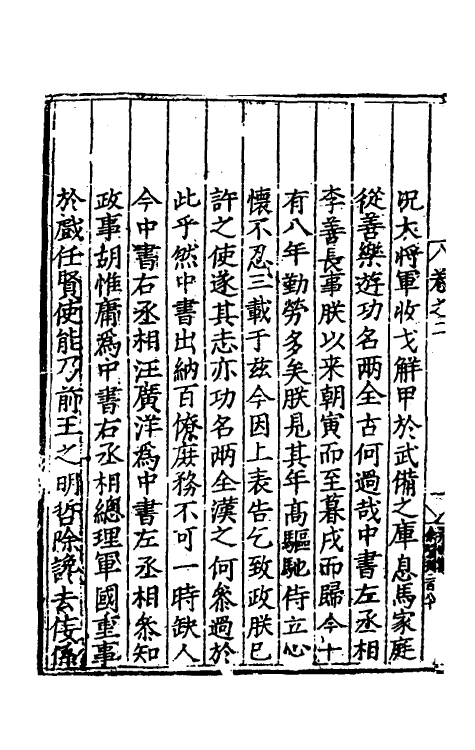 卷之二
况大將軍收戈解甲於武備之庫息馬家庭
從善樂遊功名兩全古何過哉中書左丞相
李善長事朕以來朝寅而至暮戌而歸今十
有八年勤勞多矣朕見其年高驅馳侍立心
懷不忍三載于兹今因上表告乞致政朕已
許之使遂其志亦功名兩全漢之何參過於
此乎然中書出納百僚庶務不可一時缺人
今中書右丞相汪廣洋為中書左丞相叅知
政事胡惟庸為中書右丞相總理軍國重事
於戲任賢使能乃前王之明哲除讒去佞係